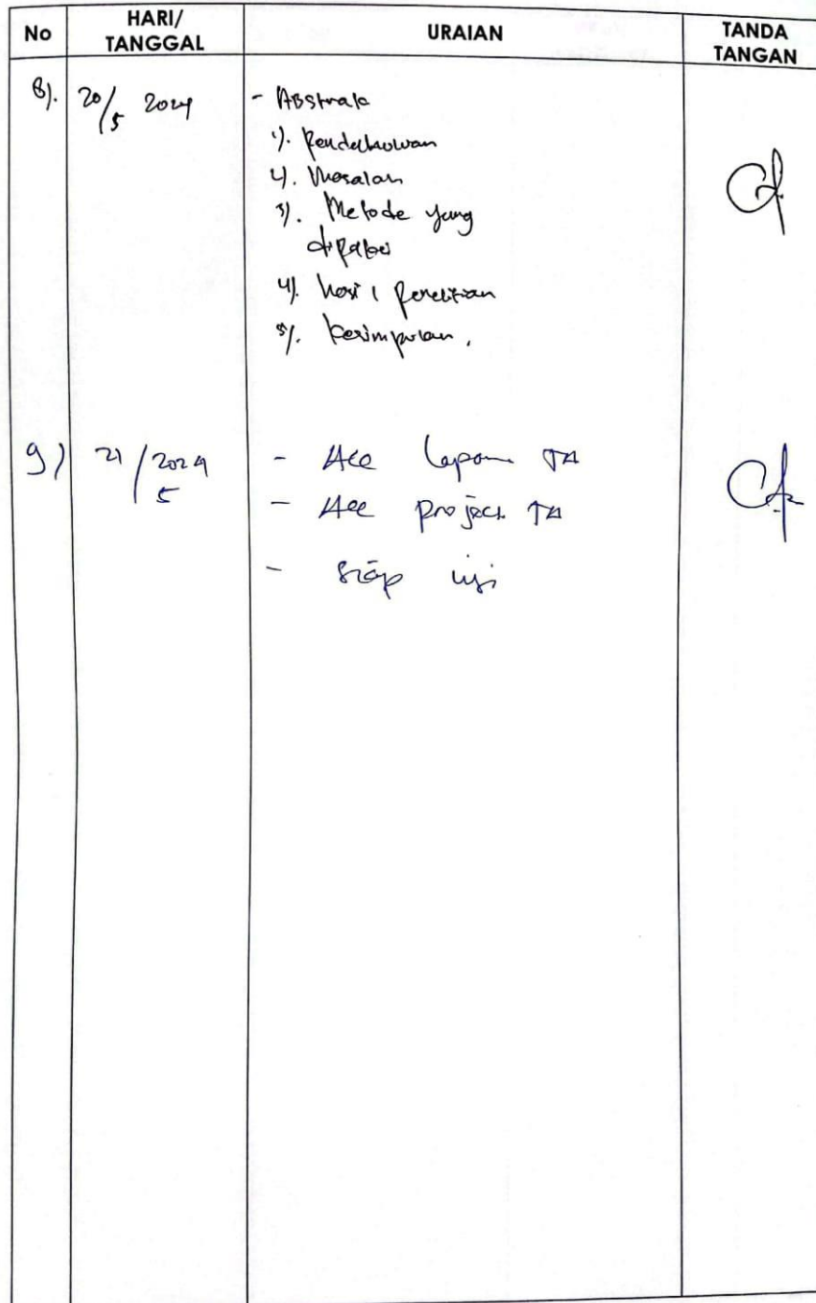 No HARI/ TANGGAL URAIAN TANDA TANGAN
8). 20/5 2024 - Abstrak
1). Pendahuluan
2). Masalah
3). Metode yang
dipakai
4). hasil penelitian
5). kesimpulan.
9) 21/5 2024 - Acc laporan TA
- Acc project TA
- siap uji